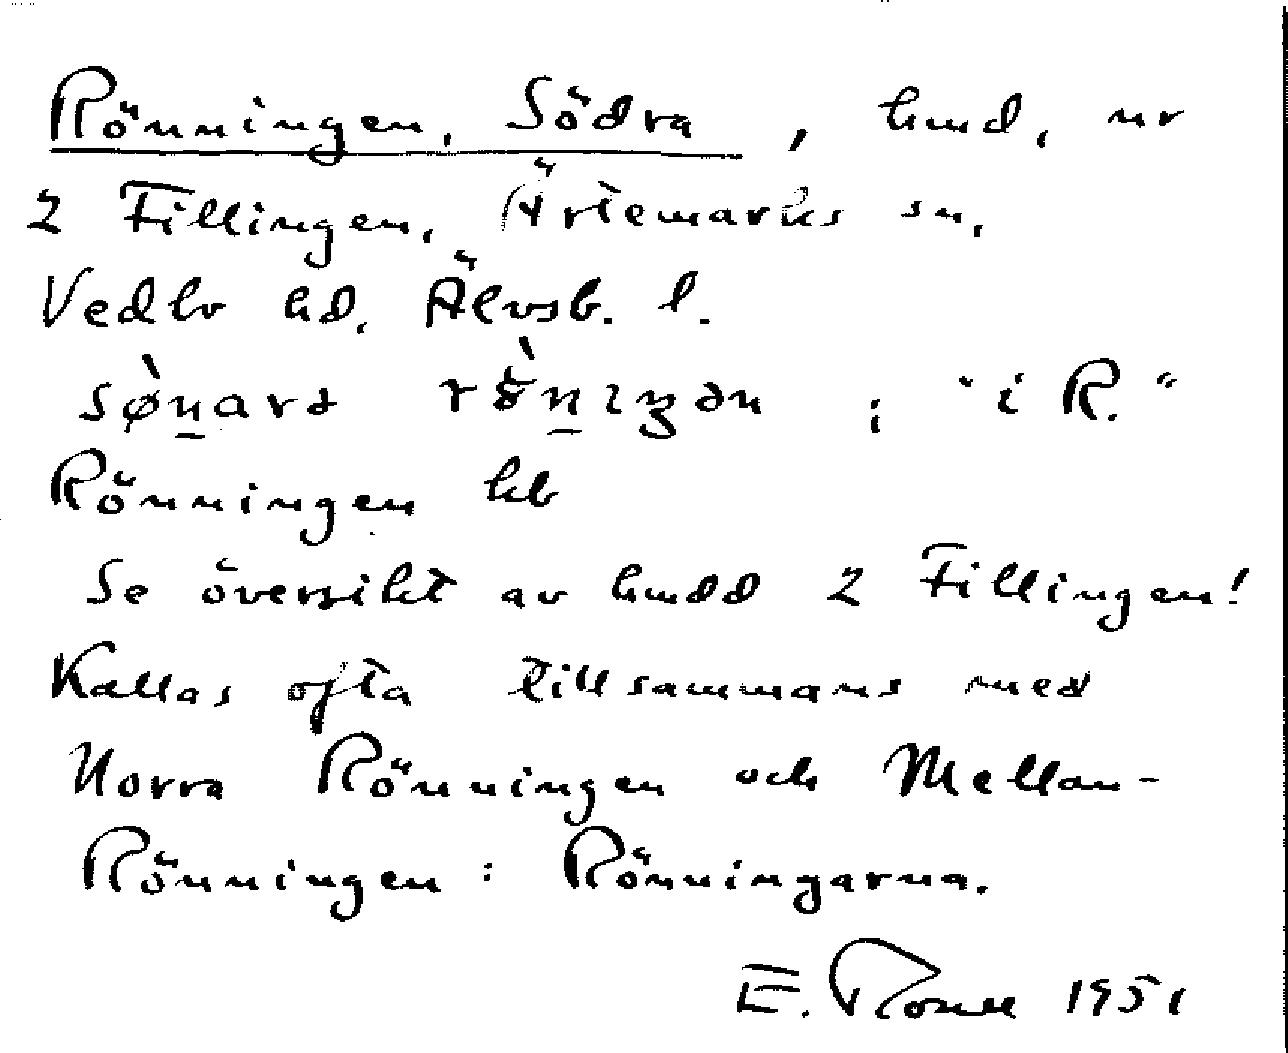 Rönningen, Södra, hmd, nr
2 Fillingen, Ärtemarks sn,
Vedbo hd, Älvsb. l.
i "i R."
Rönningen kb
Se översikt av hmdd 2 Fillingen!
Kallas ofta tillsammans med
Norra Rönningen och Mellan-
Rönningen: Rönningarna.
E. 1951